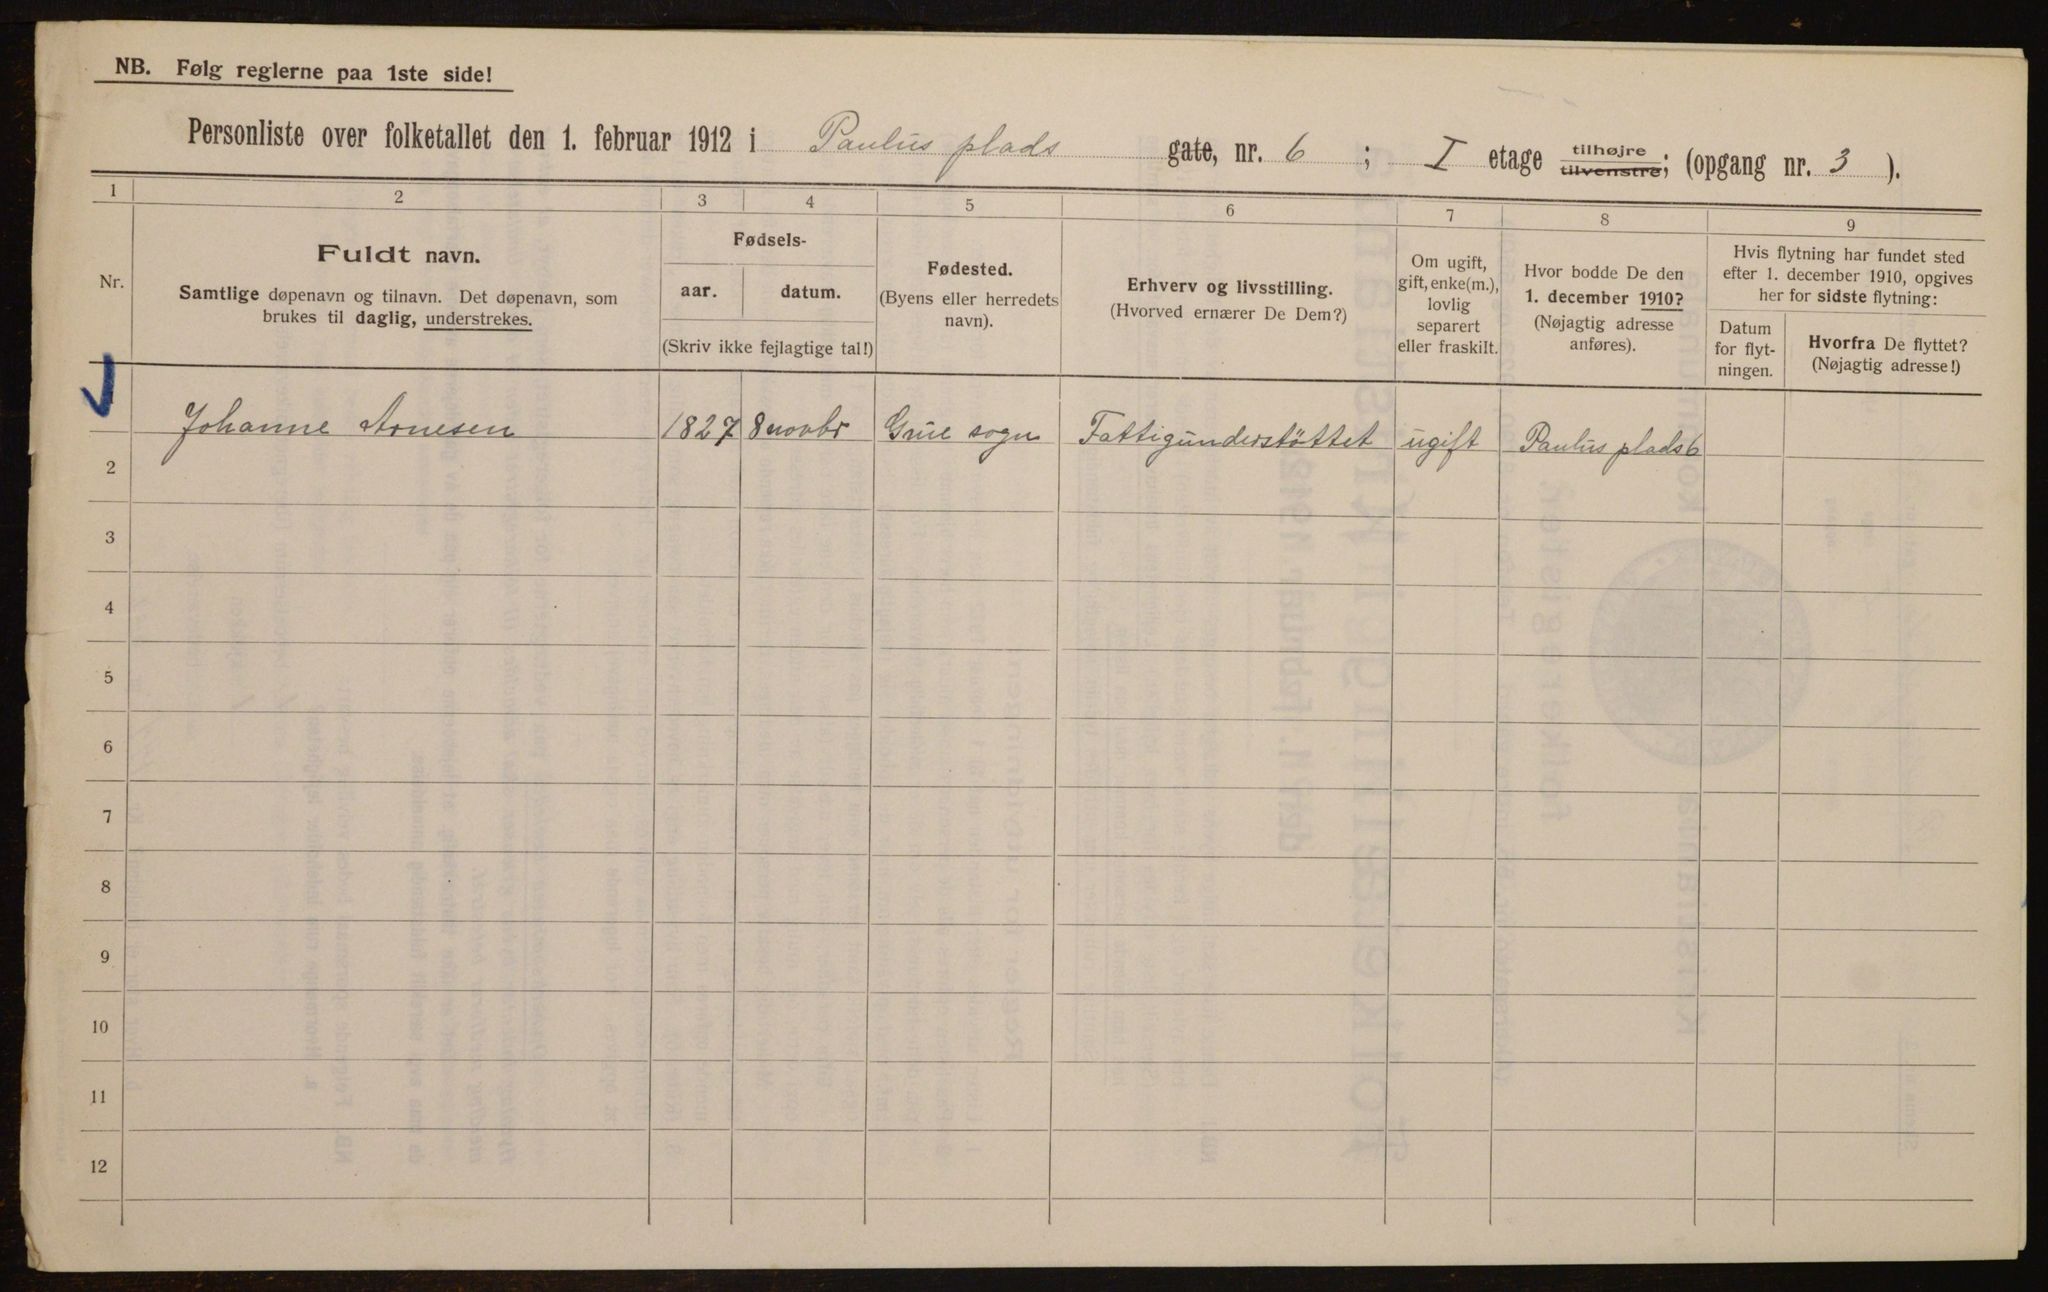 NB. Følg reglerne paa 1ste side!
Personliste over folketallet den 1. februar 1912 i Paulus plads gate, nr. 6 ; I etage tilhøjre tilvenstre; (opgang nr. 3 ).
1 2 3 4 5 6 7 8 9
Nr.
Fuldt navn.
Samtlige døpenavn og tilnavn. Det døpenavn, som
brukes til daglig, understrekes.
Fødsels-
aar. datum.
(Skriv ikke fejlagtige tal!)
Fødested.
(Byens eller herredets
navn).
Erhverv og livsstilling.
(Hvorved ernærer De Dem?)
Om ugift,
gift, enke(m.),
lovlig
separert
eller fraskilt.
Hvor bodde De den
1. december 1910?
(Nøjagtig adresse
anføres).
Hvis flytning har fundet sted
efter 1. december 1910, opgives
her for sidste flytning:
Datum
for flyt-
ningen.
Hvorfra De flyttet?
(Nøjagtig adresse!)
Johanne Arnesen 1827 8 novbr Grue sogn Fattigunderstöttet ugift Paulus plads 6
2
3
4
5
6
7
8
9
10
11
12